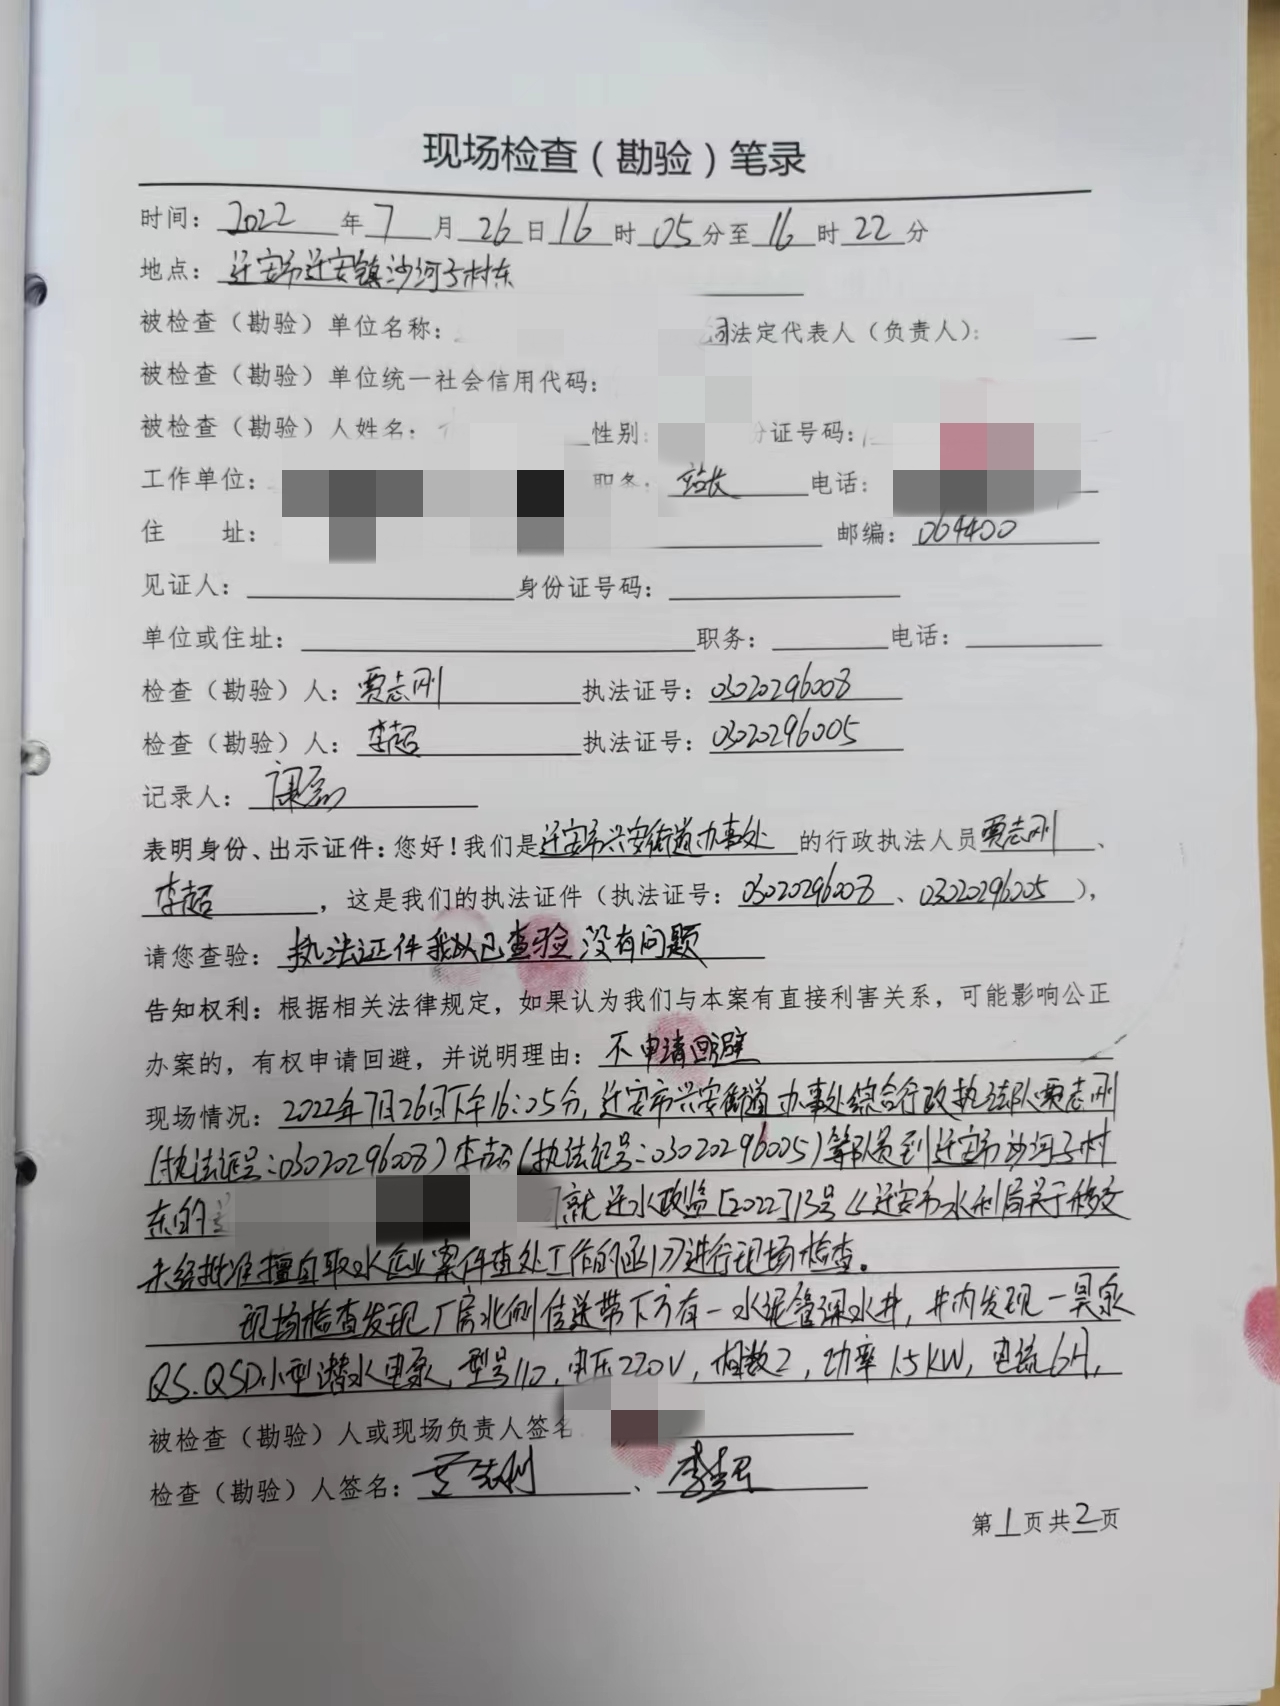 现场检查（勘验）笔录
时间：2022年7月26日16时05分至16时22分
地点：迁安市迁安镇沙河子村东
被检查（勘验）单位名称： 司法定代表人（负责人）：
被检查（勘验）单位统一社会信用代码：
被检查（勘验）人姓名： 性别： 份证号码：
工作单位： 职务：站长 电话：
住 址： 邮编：064400
见证人： 身份证号码：
单位或住址： 职务： 电话：
检查（勘验）人：贾志刚 执法证号：03020296008
检查（勘验）人：李超 执法证号：03020296005
记录人：
表明身份、出示证件：您好！我们是迁安市兴安街道办事处的行政执法人员贾志刚、
李超，这是我们的执法证件（执法证号：03020296008、03020296005），
请您查验：执法证件我以已查验没有问题
告知权利：根据相关法律规定，如果认为我们与本案有直接利害关系，可能影响公正
办案的，有权申请回避，并说明理由：不申请回避
现场情况：2022年7月26日下午16:05分，迁安市兴安街道办事处综合行政执法队贾志刚
（执法证号：03020296008）李超（执法证号：03020296005）等队员到迁安市沙河子村
东的 就迁水政监[2022]13号《迁安市水利局关于移交
未经批准擅自取水企业案件查处工作的函》进行现场检查。
现场检查发现厂房北侧传送带下方有一水泥管深水井，井内发现一昊泉
QS.QSD小型潜水电泵，型号110，电压220V，相数2，功率1.5KW，电流6A，
被检查（勘验）人或现场负责人签名
检查（勘验）人签名：贾志刚、李超
第1页共2页